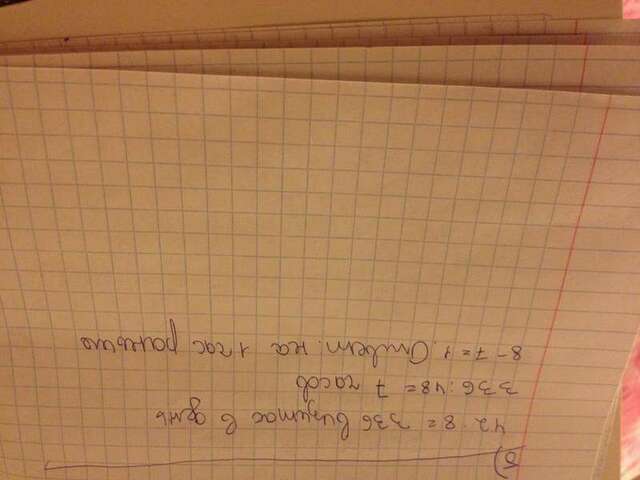 б)
42 · 8 = 336 визиток в день
336 : 48 = 7 часов
8 - 7 = 1. Ответ: на 1 час раньше